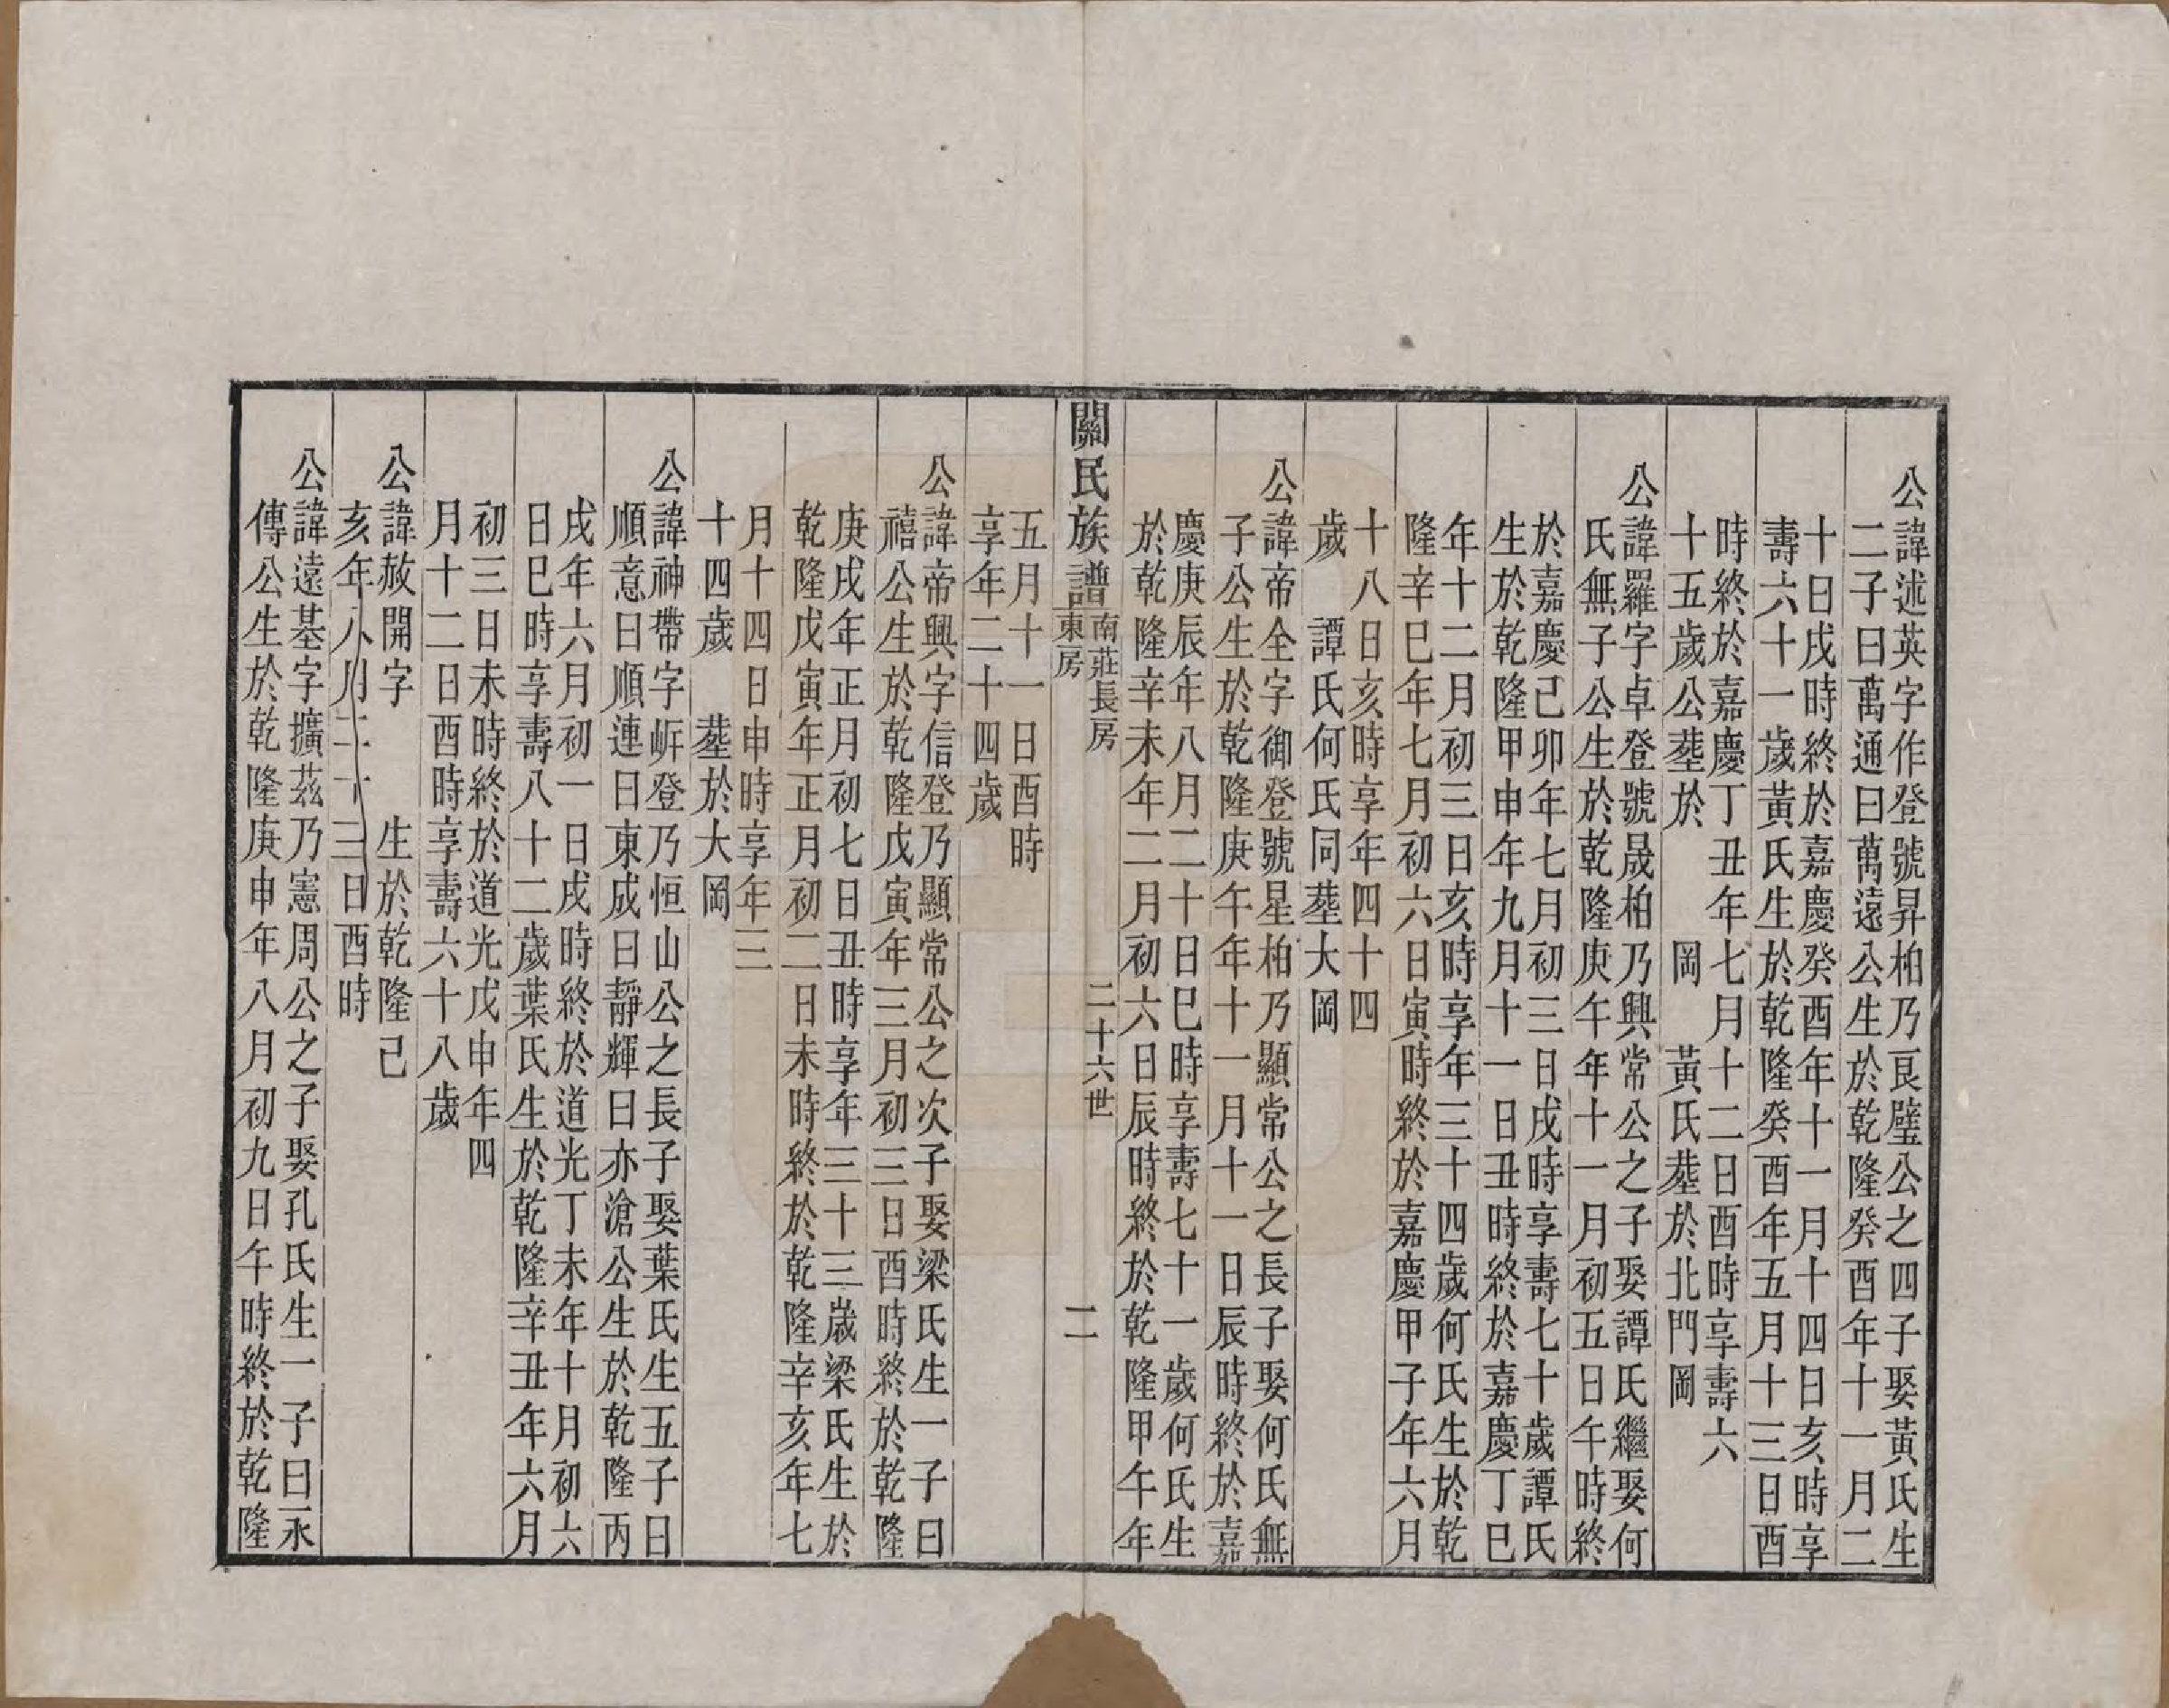 公諱述英字作登號昇柏乃良璧公之四子娶黃氏生
二子曰萬通曰萬遠公生於乾隆癸酉年十一月二
十日戌時終於嘉慶癸酉年十一月十四日亥時享
壽六十一歲黃氏生於乾隆癸酉年五月十三日酉
時終於嘉慶丁丑年七月十二日酉時享壽六
十五歲公塟於　岡　黃氏塟於北門岡
公諱羅字卓登號晟柏乃興常公之子娶譚氏繼娶何
氏無子公生於乾隆庚午年十一月初五日午時終
於嘉慶己卯年七月初三日戌時享壽七十歲譚氏
生於乾隆甲申年九月十一日丑時終於嘉慶丁巳
年十二月初三日亥時享年三十四歲何氏生於乾
隆辛巳年七月初六日寅時終於嘉慶甲子年六月
十八日亥時享年四十四
歲　譚氏何氏同塟大岡
公諱帝全字御登號星柏乃顯常公之長子娶何氏無
子公生於乾隆庚午年十一月十一日辰時終於嘉
慶庚辰年八月二十日巳時享壽七十一歲何氏生
於乾隆辛未年二月初六日辰時終於乾隆甲午年
關民族譜　南莊長房　二十六世　二
東房
五月十一日酉時
享年二十四歲
公諱帝興字信登乃顯常公之次子娶梁氏生一子曰
禧公生於乾隆戊寅年三月初三日酉時終於乾隆
庚戌年正月初七日丑時享年三十三歲梁氏生於
乾隆戊寅年正月初二日未時終於乾隆辛亥年七
月十四日申時享年三
十四歲　塟於大岡
公諱神帶字岍登乃恒山公之長子娶葉氏生五子曰
順意曰順連曰東成曰靜輝曰亦滄公生於乾隆丙
戌年六月初一日戌時終於道光丁未年十月初六
日巳時享壽八十二歲葉氏生於乾隆辛丑年六月
初三日未時終於道光戊申年四
月十二日酉時享壽六十八歲
公諱赦開字　生於乾隆己
亥年八月二十三日酉時
公諱遠基字擴茲乃憲周公之子娶孔氏生一子曰永
傳公生於乾隆庚申年八月初九日午時終於乾隆